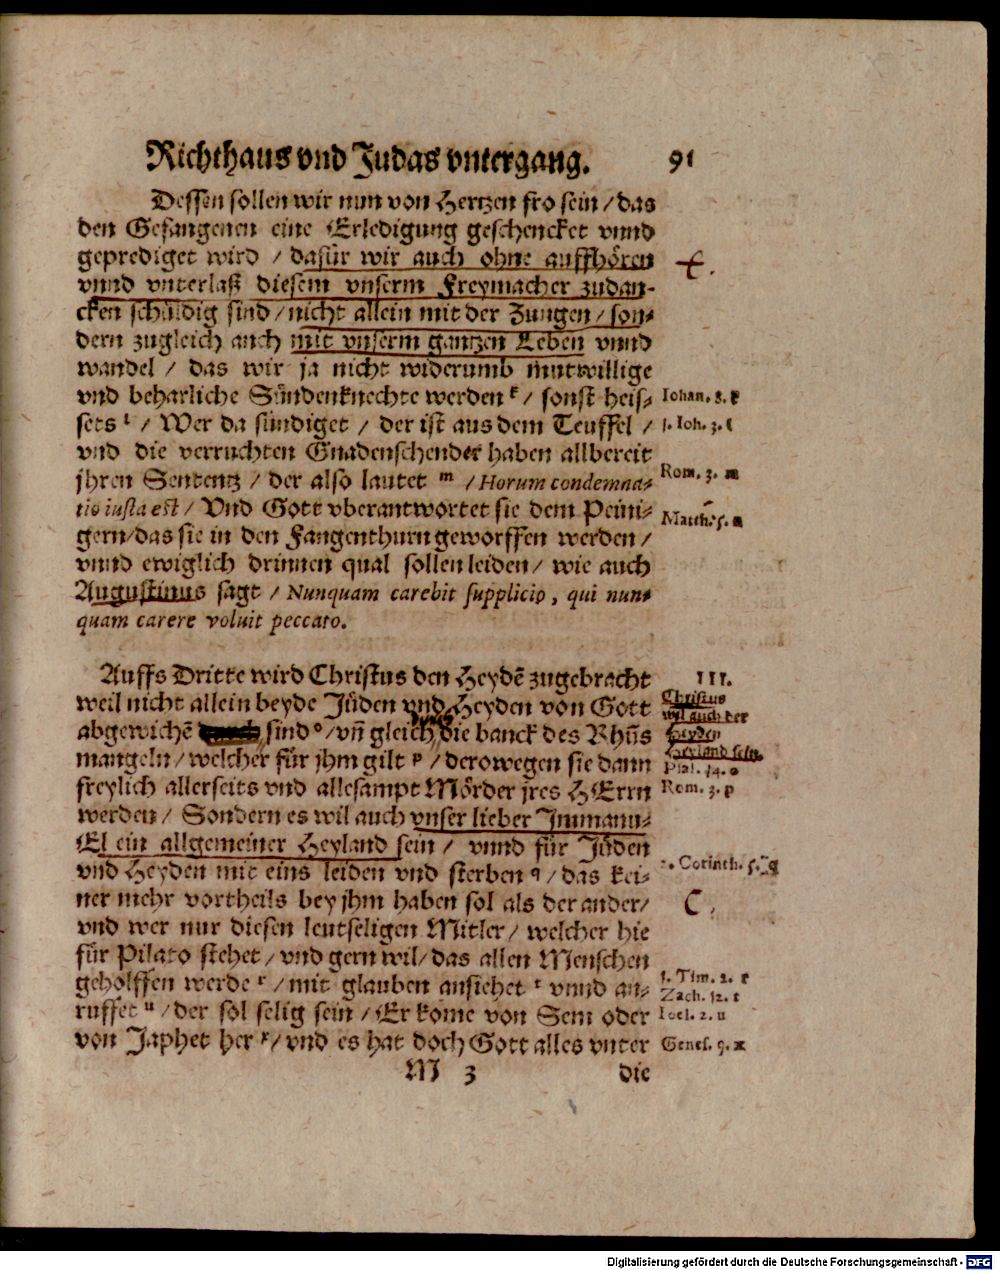 Richthaus vnd Judas vntergang. 91
Dessen sollen wir nun von Hertzen fro sein / das
den Gefangenen eine Erledigung geschencket vnnd
geprediget wird / dafür wir auch ohne auffhören
vnnd vnterlaß diesem vnserm Freymacher zudan-
cken schüldig sind / nicht allein mit der Zungen / son-
dern zugleich auch mit vnserm gantzen Leben vnnd
wandel / das wir ja nicht widerumb mutwillige
vnd beharliche Sündenknechte werden k / sonst heis-
sets l / Wer da sündiget / der ist aus dem Teuffel /
vnd die verruchten Gnadenschender haben allbereit
jhren Sententz / der also lautet m / Horum condemna-
tio iusta est / Vnd Gott vberantwortet sie dem Peini-
gern / das sie in den Fangenthurn geworffen werden /
vnnd ewiglich drinnen qual sollen leiden / wie auch
Augustinus sagt / Nunquam carebit supplicio, qui nun-
quam carere voluit peccato.
Iohan. 8. k
1. Ioh. 3. l
Rom. 3. m
Matth. 5. n
Auffs Dritte wird Christus den Heydē zugebracht
weil nicht allein beyde Jüden vnd Heyden von Gott
abgewichē sind o / vñ gleich die banck des Rhūs
mangeln / welcher für jhm gilt p / derowegen sie dann
freylich allerseits vnd allesampt Mörder jres HErrn
werden / Sondern es wil auch vnser lieber Immanu-
El ein allgemeiner Heyland sein / vnnd für Jüden
vnd Heyden mit eins leiden vnd sterben q / das kei-
ner mehr vortheils bey jhm haben sol als der ander /
vnd wer nur diesen leutseligen Mitler / welcher hie
für Pilato stehet / vnd gern wil / das allen Menschen
geholffen werde r / mit glauben ansiehet t vnnd an-
ruffet u / der sol selig sein / Er kome von Sem oder
von Japhet her x / vnd es hat doch Gott alles vnter
III.
Christus
wil auch der
Heyden
Heyland sein.
Psal. 14. o
Rom. 3. p
2. Corinth. 5. q
1. Tim. 2. r
Zach. 12. t
Ioel. 2. u
Genes. 9. x
M 3 die
Digitalisierung gefördert durch die Deutsche Forschungsgemeinschaft - DFG